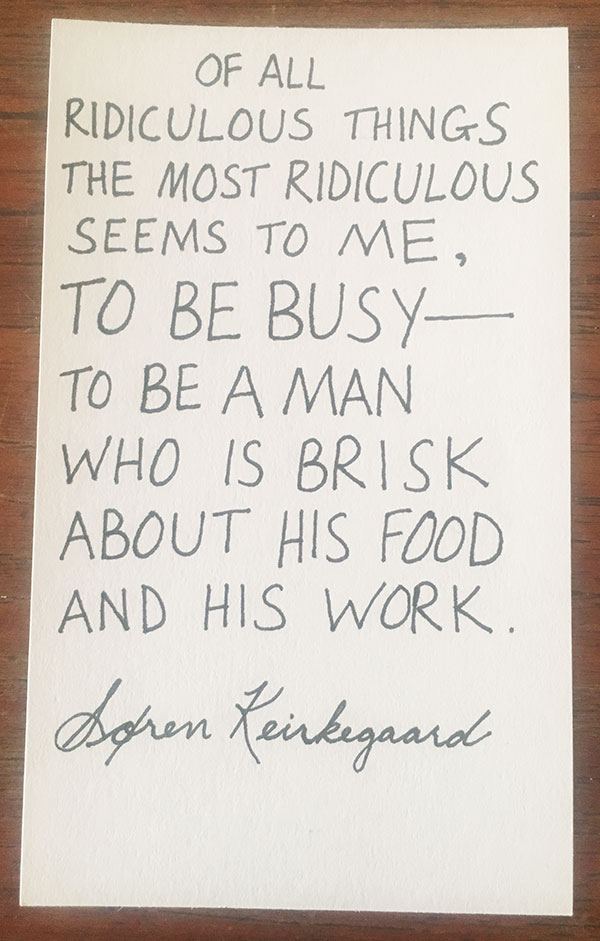 OF ALL
RIDICULOUS THINGS
THE MOST RIDICULOUS
SEEMS TO ME,
TO BE BUSY—
TO BE A MAN
WHO IS BRISK
ABOUT HIS FOOD
AND HIS WORK.
Søren Keirkegaard